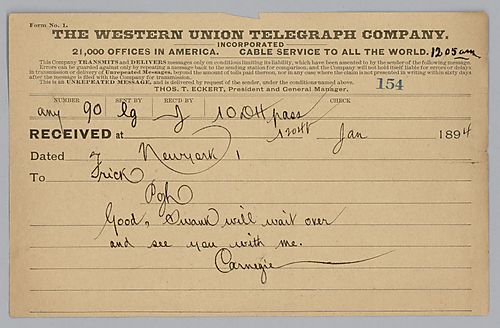 Form No. 1.
THE WESTERN UNION TELEGRAPH COMPANY.
INCORPORATED
21,000 OFFICES IN AMERICA. CABLE SERVICE TO ALL THE WORLD. 1205am
This Company TRANSMITS and DELIVERS messages only on conditions limiting its liability, which have been assented to by the sender of the following message.
Errors can be guarded against only by repeating a message back to the sending station for comparison, and the Company will not hold itself liable for errors or delays
in transmission or delivery of Unrepeated Messages, beyond the amount of tolls paid thereon, nor in any case where the claim is not presented in writing within sixty days
after the message is filed with the Company for transmission.
This is an UNREPEATED MESSAGE, and is delivered by request of the sender, under the conditions named above.
THOS. T. ECKERT, President and General Manager.
154
NUMBER SENT BY REC'D BY CHECK
any 90 g J pass
RECEIVED at Jan 1894
Dated Newyork 1
To Frick
Pgh
Good, Swank will wait over
and see you with me.
Carnegie